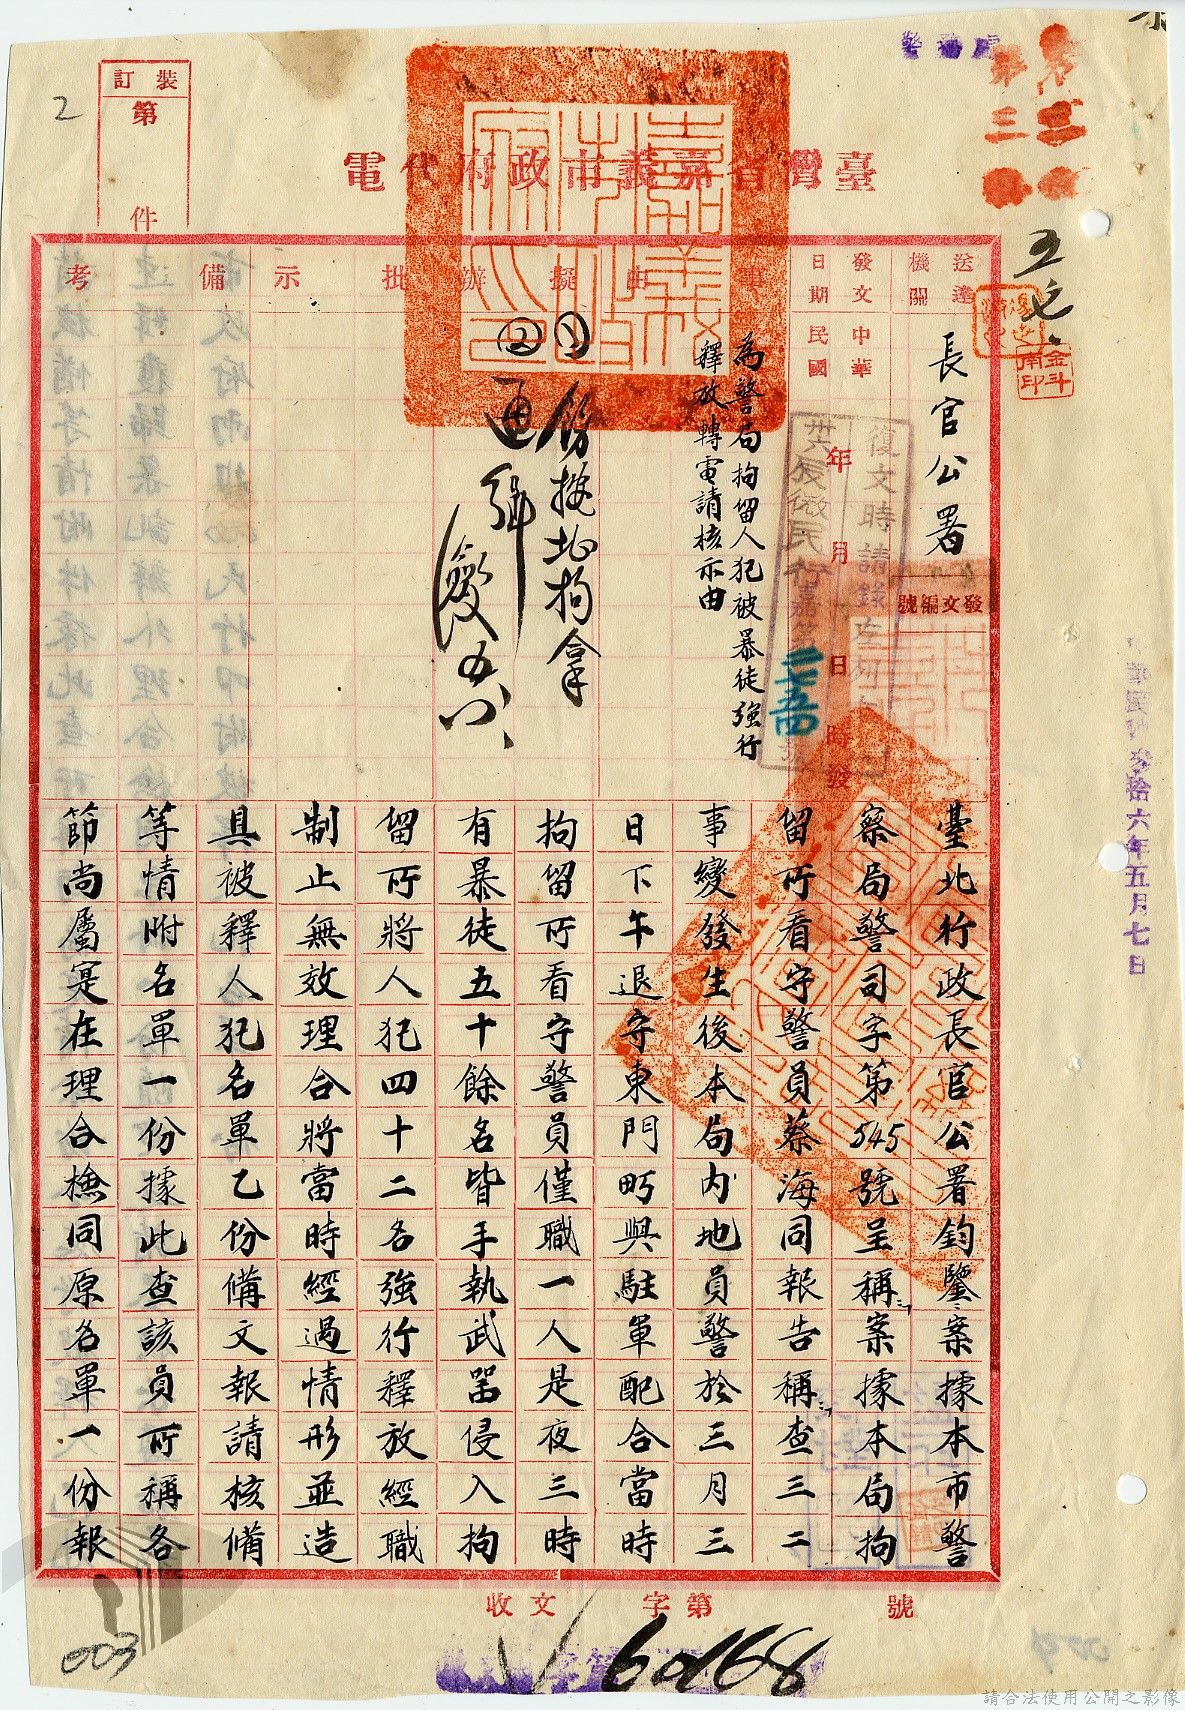 臺灣省嘉義市政府代電
裝訂
第
件
2
送達機關
長官公署
發文日期
中華民國
年月日時發
發文編號
復文時請錄
卅六辰微民行嘉第
事由
為警局拘留人犯被暴徒強行
釋放轉電請核示由
擬辦
批示
備考
①飭按址拘拿
②通緝
五、八、
五七、
金斗南印
第三
臺北行政長官公署鈞鑒:案據本市警
察局警司字第545號呈稱:案據本局拘
留所看守警員蔡海同報告稱:查三二
事變發生後本局內地員警於三月三
日下午退守東門町與駐軍配合當時
拘留所看守警員僅職一人是夜三時
有暴徒五十餘名皆手執武器侵入拘
留所將人犯四十二名強行釋放經職
制止無效理合將當時經過情形並造
具被釋人犯名單乙份備文報請核備
等情附名單一份據此查該員所稱各
節尚屬寔在理合檢同原名單一份報
中華民國叁拾六年五月七日
收文 字第 號
60168
003
請合法使用公開之影像